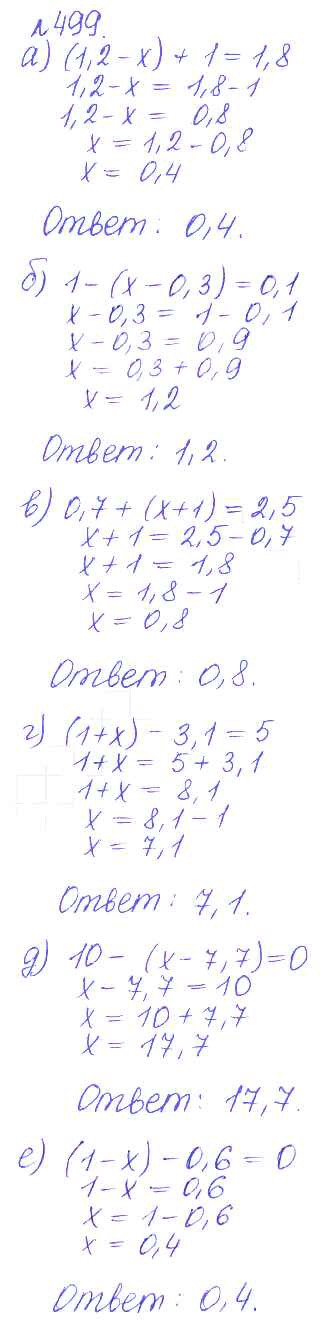 №499.
а) (1,2-x) + 1 = 1,8
1,2-x = 1,8-1
1,2-x = 0,8
x = 1,2-0,8
x = 0,4
Ответ: 0,4.
б) 1-(x-0,3)=0,1
x-0,3 = 1-0,1
x-0,3 = 0,9
x = 0,3+0,9
x = 1,2
Ответ: 1,2.
в) 0,7+(x+1)=2,5
x+1=2,5-0,7
x+1 = 1,8
x = 1,8-1
x = 0,8
Ответ: 0,8.
г) (1+x) - 3,1 = 5
1+x = 5+3,1
1+x = 8,1
x = 8,1-1
x = 7,1
Ответ: 7,1.
д) 10- (x-7,7)=0
x-7,7 = 10
x = 10+7,7
x = 17,7
Ответ: 17,7.
е) (1-x)-0,6 = 0
1-x = 0,6
x = 1-0,6
x = 0,4
Ответ: 0,4.